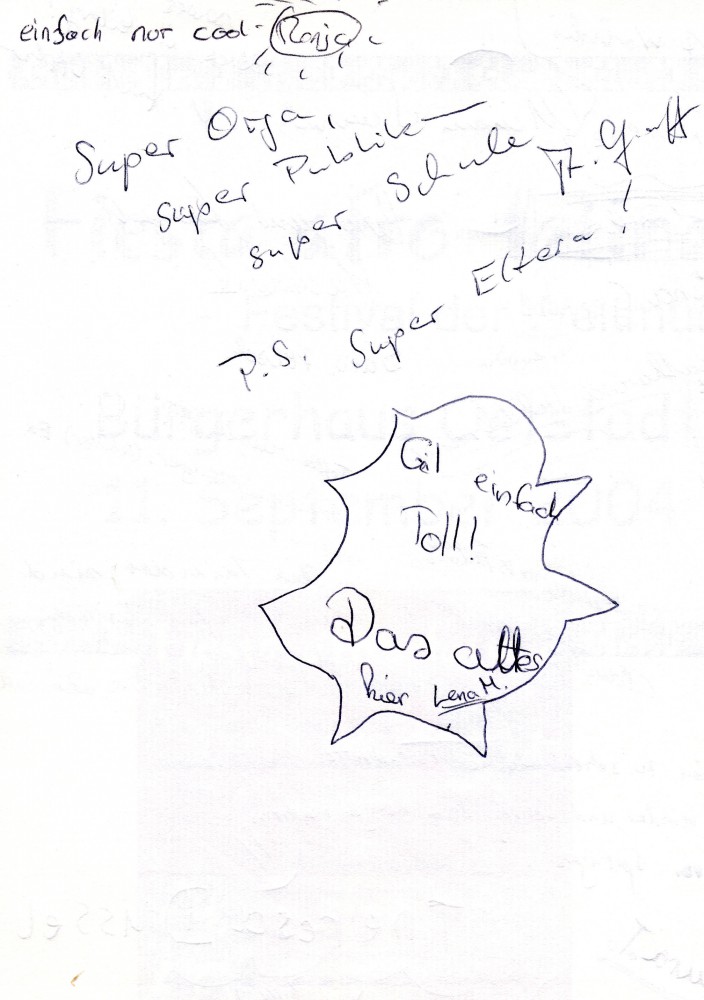 einfach nur cool - Ranja
Super Orga,
super Publikum
super Schule
P.S. Super Eltern!
Gil einfach
Toll!!
Das alles
hier Lena M.